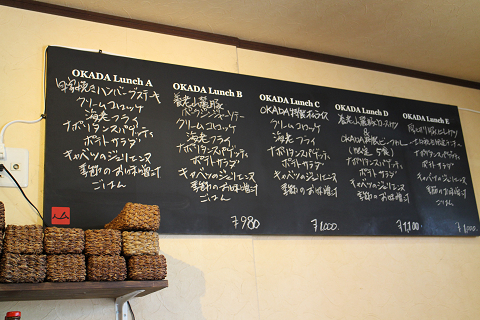 OKADA Lunch A
自家焼きハンバーグステーキ
クリームコロッケ
海老フライ
ナポリタンスパゲッティ
ポテトサラダ
キャベツのジュリエンヌ
季節のお味噌汁
ごはん
OKADA Lunch B
クリームコロッケ
海老フライ
ナポリタンスパゲッティ
ポテトサラダ
キャベツのジュリエンヌ
季節のお味噌汁
ごはん
¥980
OKADA Lunch C
OKADA特製オムライス
クリームコロッケ
海老フライ
ナポリタンスパゲッティ
ポテトサラダ
キャベツのジュリエンヌ
季節のお味噌汁
¥1,000.
OKADA Lunch D
&
ナポリタンスパゲッティ
ポテトサラダ
キャベツのジュリエンヌ
季節のお味噌汁
¥1,100.
OKADA Lunch E
ナポリタンスパゲッティ
ポテトサラダ
キャベツのジュリエンヌ
季節のお味噌汁
ごはん
¥1,000.